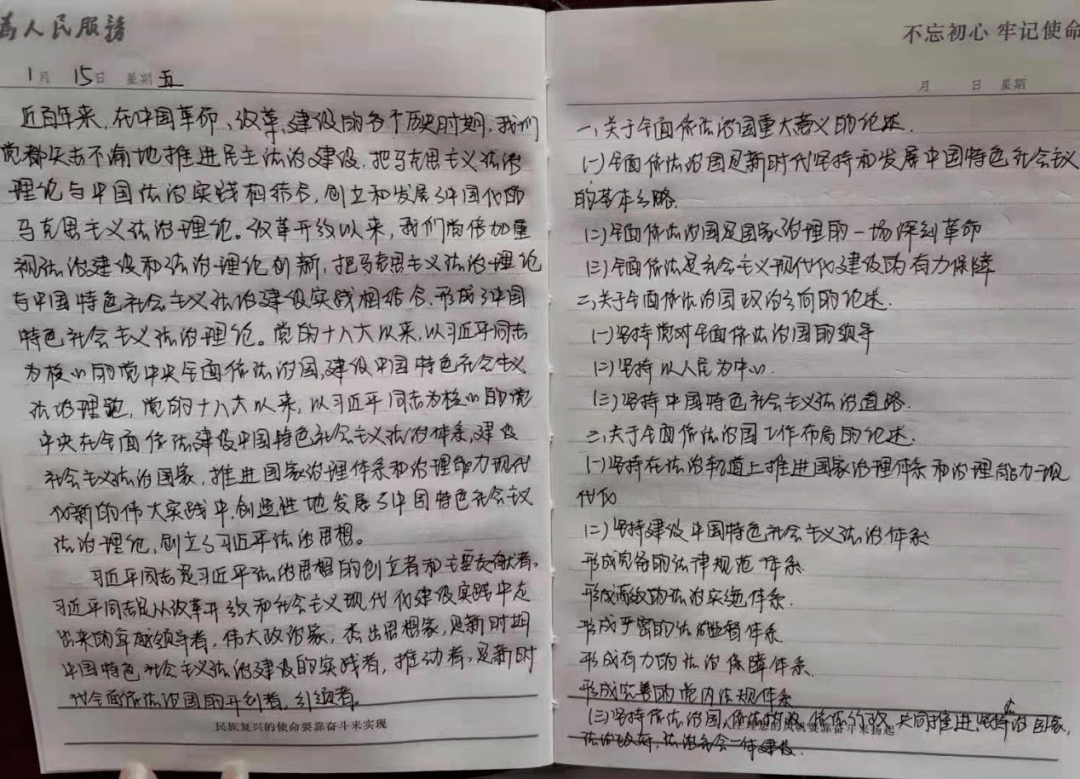 为人民服务
1月 15日 星期五
近百年来,在中国革命、改革、建设的各个历史时期,我们
党都矢志不渝地推进民主法治建设,把马克思主义法治
理论与中国法治实践相结合,创立和发展了中国化的
马克思主义法治理论。改革开放以来,我们尚倍加重
视法治建设和法治理论创新,把马克思主义法治理论
与中国特色社会主义法治建设实践相结合,形成了中国
特色社会主义法治理论。党的十八大以来,以习近平同志
为核心的党中央全面依法治国,建设中国特色社会主义
法治理论,党的十八大以来,以习近平同志为核心的党
中央在全面依法建设中国特色社会主义法治体系,建设
社会主义法治国家,推进国家治理体系和治理能力现代
化新的伟大实践中,创造性地发展了中国特色社会主义
法治理论,创立了习近平法治思想。
习近平同志是习近平法治思想的创立者和主要贡献者。
习近平同志是从改革开放和社会主义现代化建设实践中走
出来的卓越领导者,伟大政治家,杰出思想家,是新时期
中国特色社会主义法治建设的实践者,推动者,是新时
代全面依法治国的开创者,引领者。
民族复兴的使命要靠奋斗来实现
不忘初心 牢记使命
月 日 星期
一、关于全面依法治国重大意义的论述.
(一)全面依法治国是新时代坚持和发展中国特色社会主义
的基本方略.
(二)全面依法治国是国家治理的一场深刻革命
(三)全面依法是社会主义现代化建设的有力保障
二、关于全面依法治国政治方向的论述.
(一)坚持党对全面依法治国的领导
(二)坚持以人民为中心.
(三)坚持中国特色社会主义法治道路.
三、关于全面依法治国工作布局的论述.
(一)坚持在法治轨道上推进国家治理体系和治理能力现
代化
(二)坚持建设中国特色社会主义法治体系
形成完备的法律规范体系.
形成高效的法治实施体系.
形成严密的法治监督体系.
形成有力的法治保障体系.
形成完善的党内法规体系
(三)坚持依法治国,依法执政,依法行政,共同推进,坚持法治国家,
法治政府,法治社会一体建设.
人生理想的风帆要靠奋斗来扬起